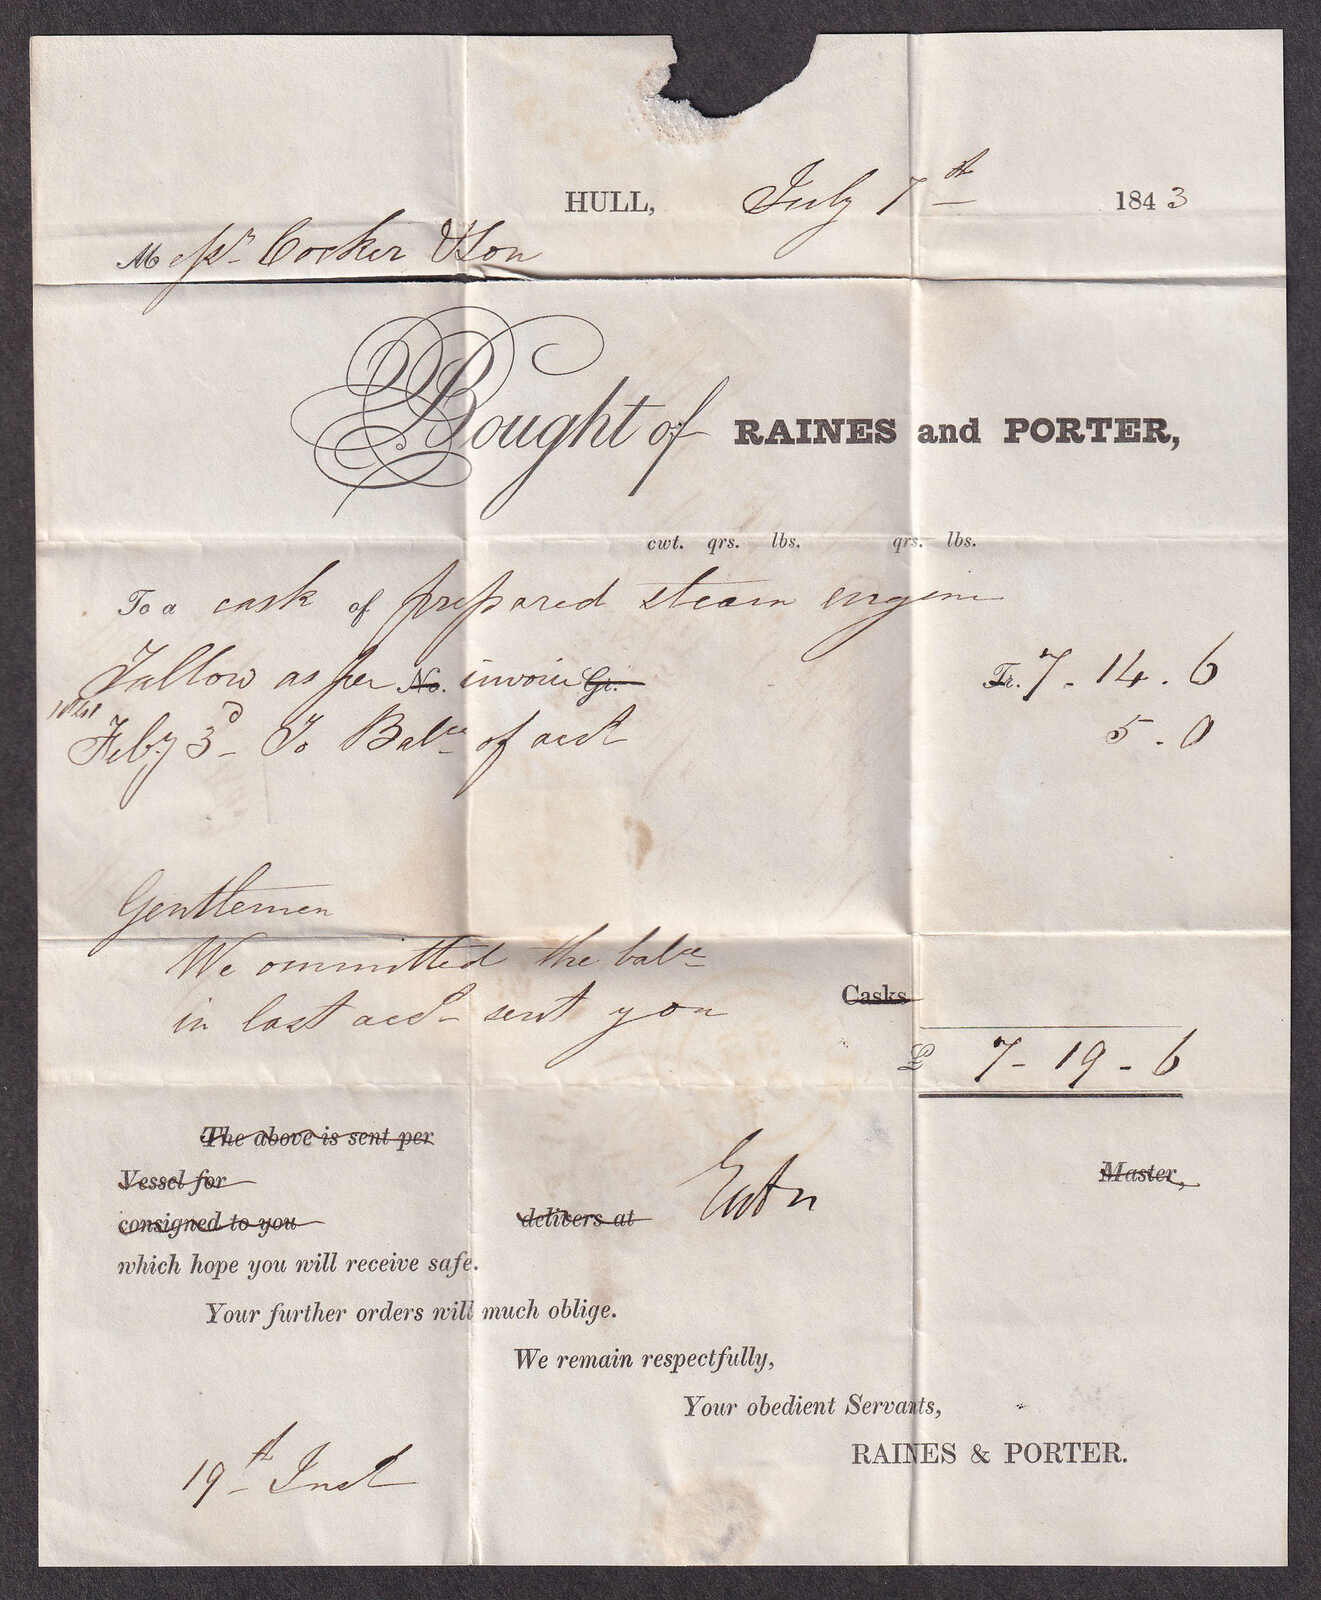 HULL, July 7th 1843
Messrs Cocker & Son
Bought of RAINES and PORTER,
cwt. qrs. lbs. qrs. lbs.
To a cask of prepared steam engine
Tallow as per No. invoice Gr. Tr. 7 - 14 . 6
1841
Feby 3d - To Balce of acct 5 . 0
Gentlemen
We ommitted the balce
in last acct sent you
Casks
£ 7 - 19 - 6
The above is sent per
Vessel for Master,
consigned to you delivers at
which hope you will receive safe.
Your further orders will much oblige.
We remain respectfully,
Your obedient Servants,
RAINES & PORTER.
19th Inst